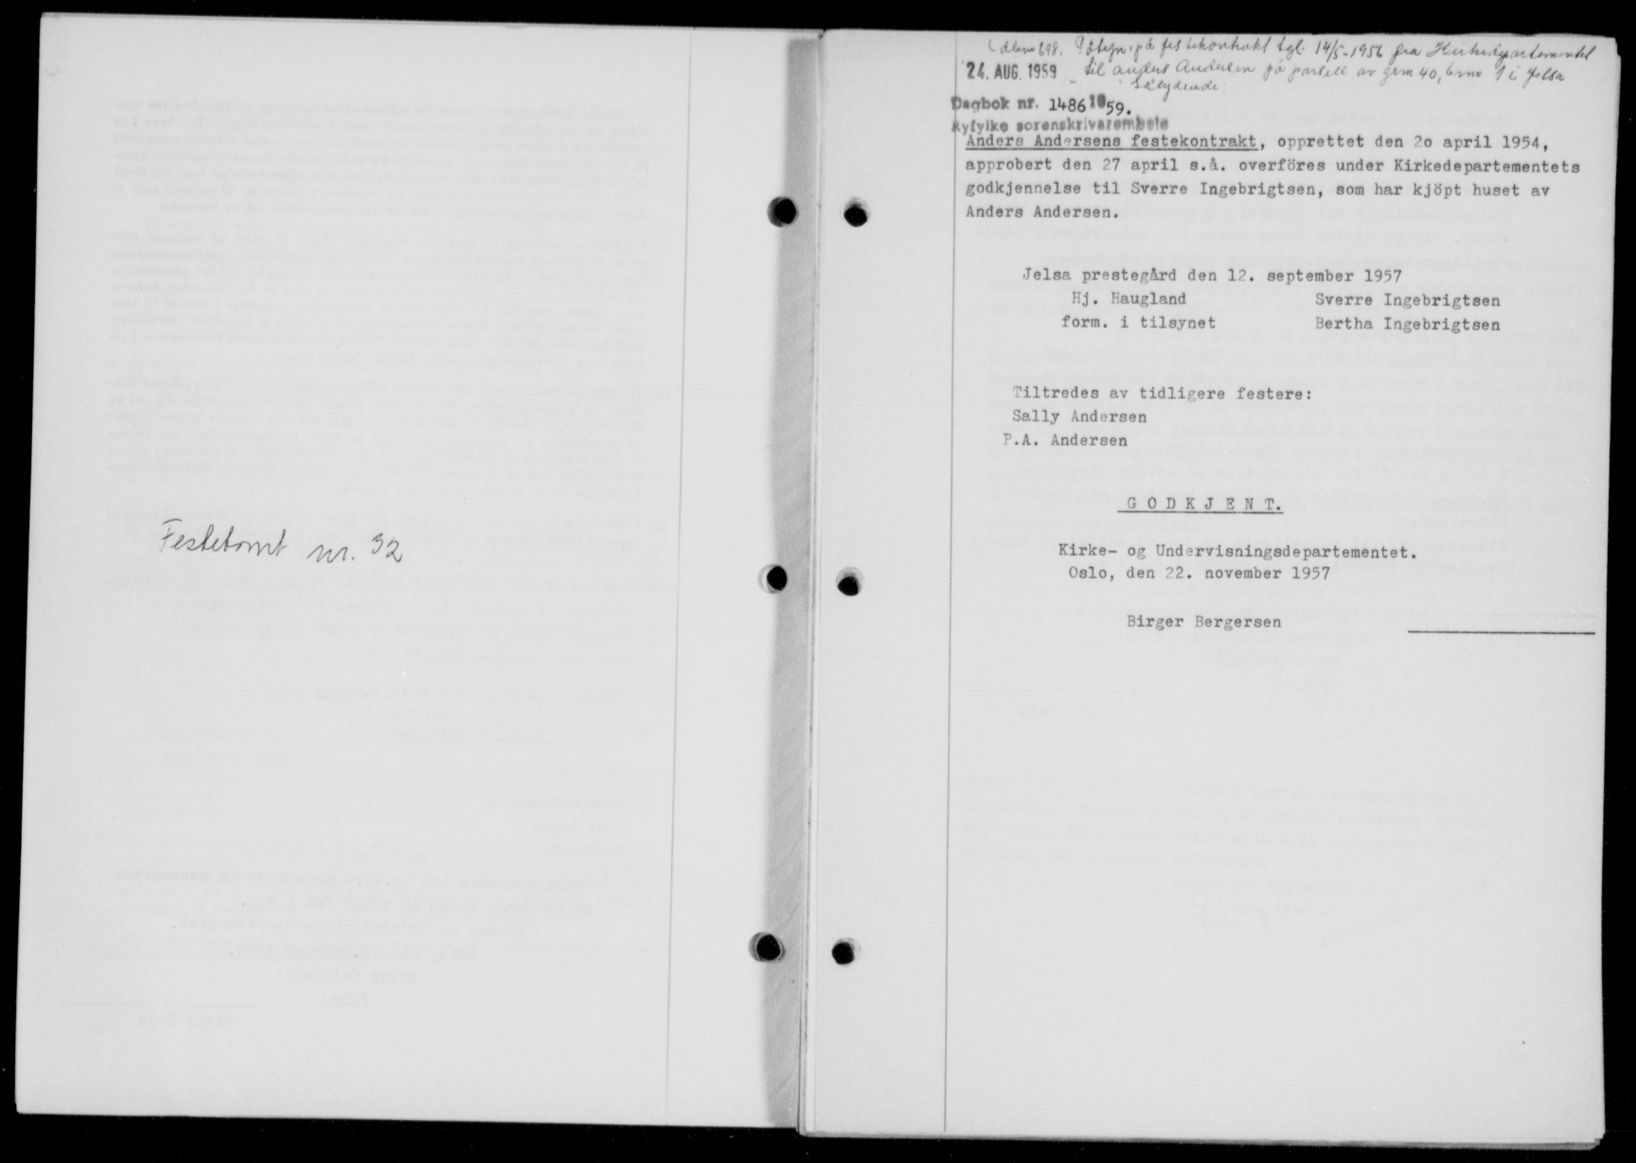 Festetomt nr. 32
Påtegn. på festekontrakt tgl. 14/5-1956 fra Kirkedepartementet
24. AUG. 1959 til Anders Andersen på parsell av gnr 40, bnr 1 i Jelsa
Sålydende:
Dagbok nr. 1486 1959.
Ryfylke sorenskriverembete
Anders Andersens festekontrakt, opprettet den 2o april 1954,
approbert den 27 april s.å. overföres under Kirkedepartementets
godkjennelse til Sverre Ingebrigtsen, som har kjöpt huset av
Anders Andersen.
Jelsa prestegård den 12. september 1957
Hj. Haugland Sverre Ingebrigtsen
form. i tilsynet Bertha Ingebrigtsen
Tiltredes av tidligere festere:
Sally Andersen
P.A. Andersen
G O D K J E N T.
Kirke- og Undervisningsdepartementet.
Oslo, den 22. november 1957
Birger Bergersen